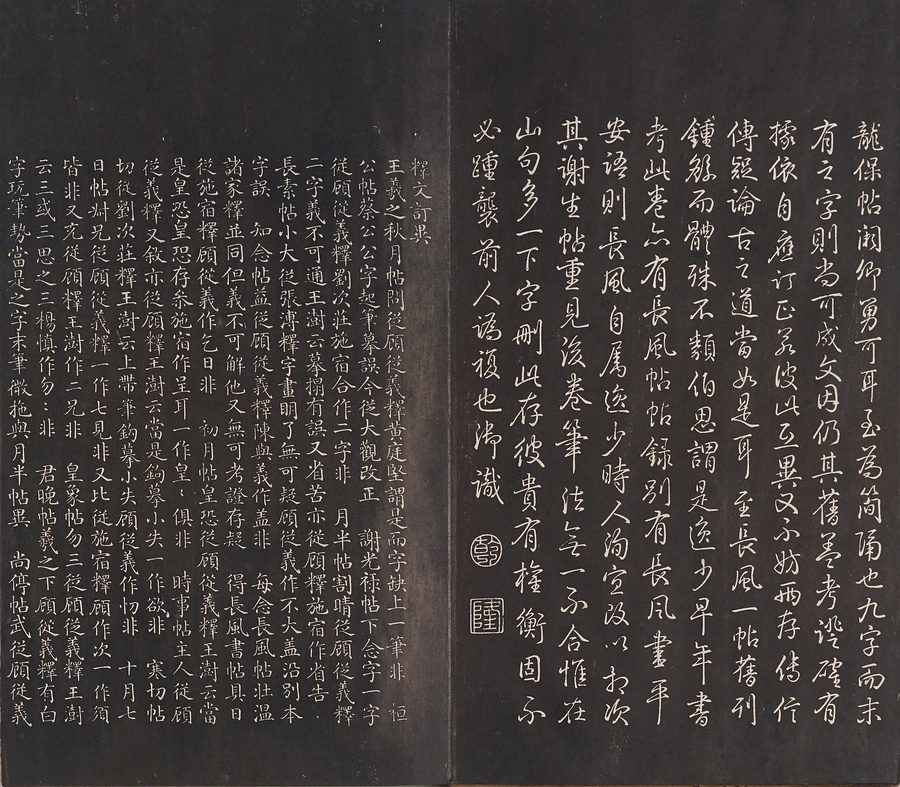 龍保帖湘卿勇可耳至為简隔也九字而末
有之字則尚可成文因仍其舊蓋考證確有
據依自應訂正若彼此互異又不妨兩存傳信
傳疑論古之道當如是耳至長風一帖舊刊
鍾繇而體殊不類伯思謂是逸少早年書
考此卷亦有長風帖帖錄別有長風書平
安語則長風自屬逸少時人洵宜改以相次
其謝生帖重見後卷筆法無一不合惟在
山句多一下字刪此存彼貴有權衡固不
必踵襲前人譌複也御識
乾
隆
釋文訂異
王羲之秋月帖問從顧從義釋黃庭堅謂是而字缺上一筆非 桓
公帖蔡公公字起筆摹誤今從大觀改正 謝光祿帖下念字一字
從顧從義釋劉次莊施宿合作二字非 月半帖割晴從顧從義釋
二字義不可通王澍云摹搨有誤又省苦亦從顧釋施宿作省告
長素帖小大從張溥釋字畫明了無可疑顧從義作不大蓋沿別本
字誤 知念帖益從顧從義釋陳與義作盖非 每念長風帖壯溫
諸家釋並同但義不可解他又無可考證存疑 得長風書帖具日
從施宿釋顧從義作乞日非 初月帖皇恐從顧從義釋王澍云當
是皇恐皇恐存參施宿作呈耳一作皇〻俱非 時事帖主人從顧
從義釋又敘亦從顧釋王澍云當是鉤摹小失一作欲非 寒切帖
切從劉次莊釋王澍云上帶筆鉤摹小失顧從義作忉非 十月七
日帖 兄從顧從義釋一作七見非又比從施宿釋顧作次一作須
皆非又充從顧釋王澍作二兄非 皇象帖勿三從顧從義釋王澍
云三或三思之三楊慎作勿〻非 君晚帖羲之下顧從義釋有白
字玩筆勢當是之字末筆微拖與月半帖異 尚停帖武從顧從義